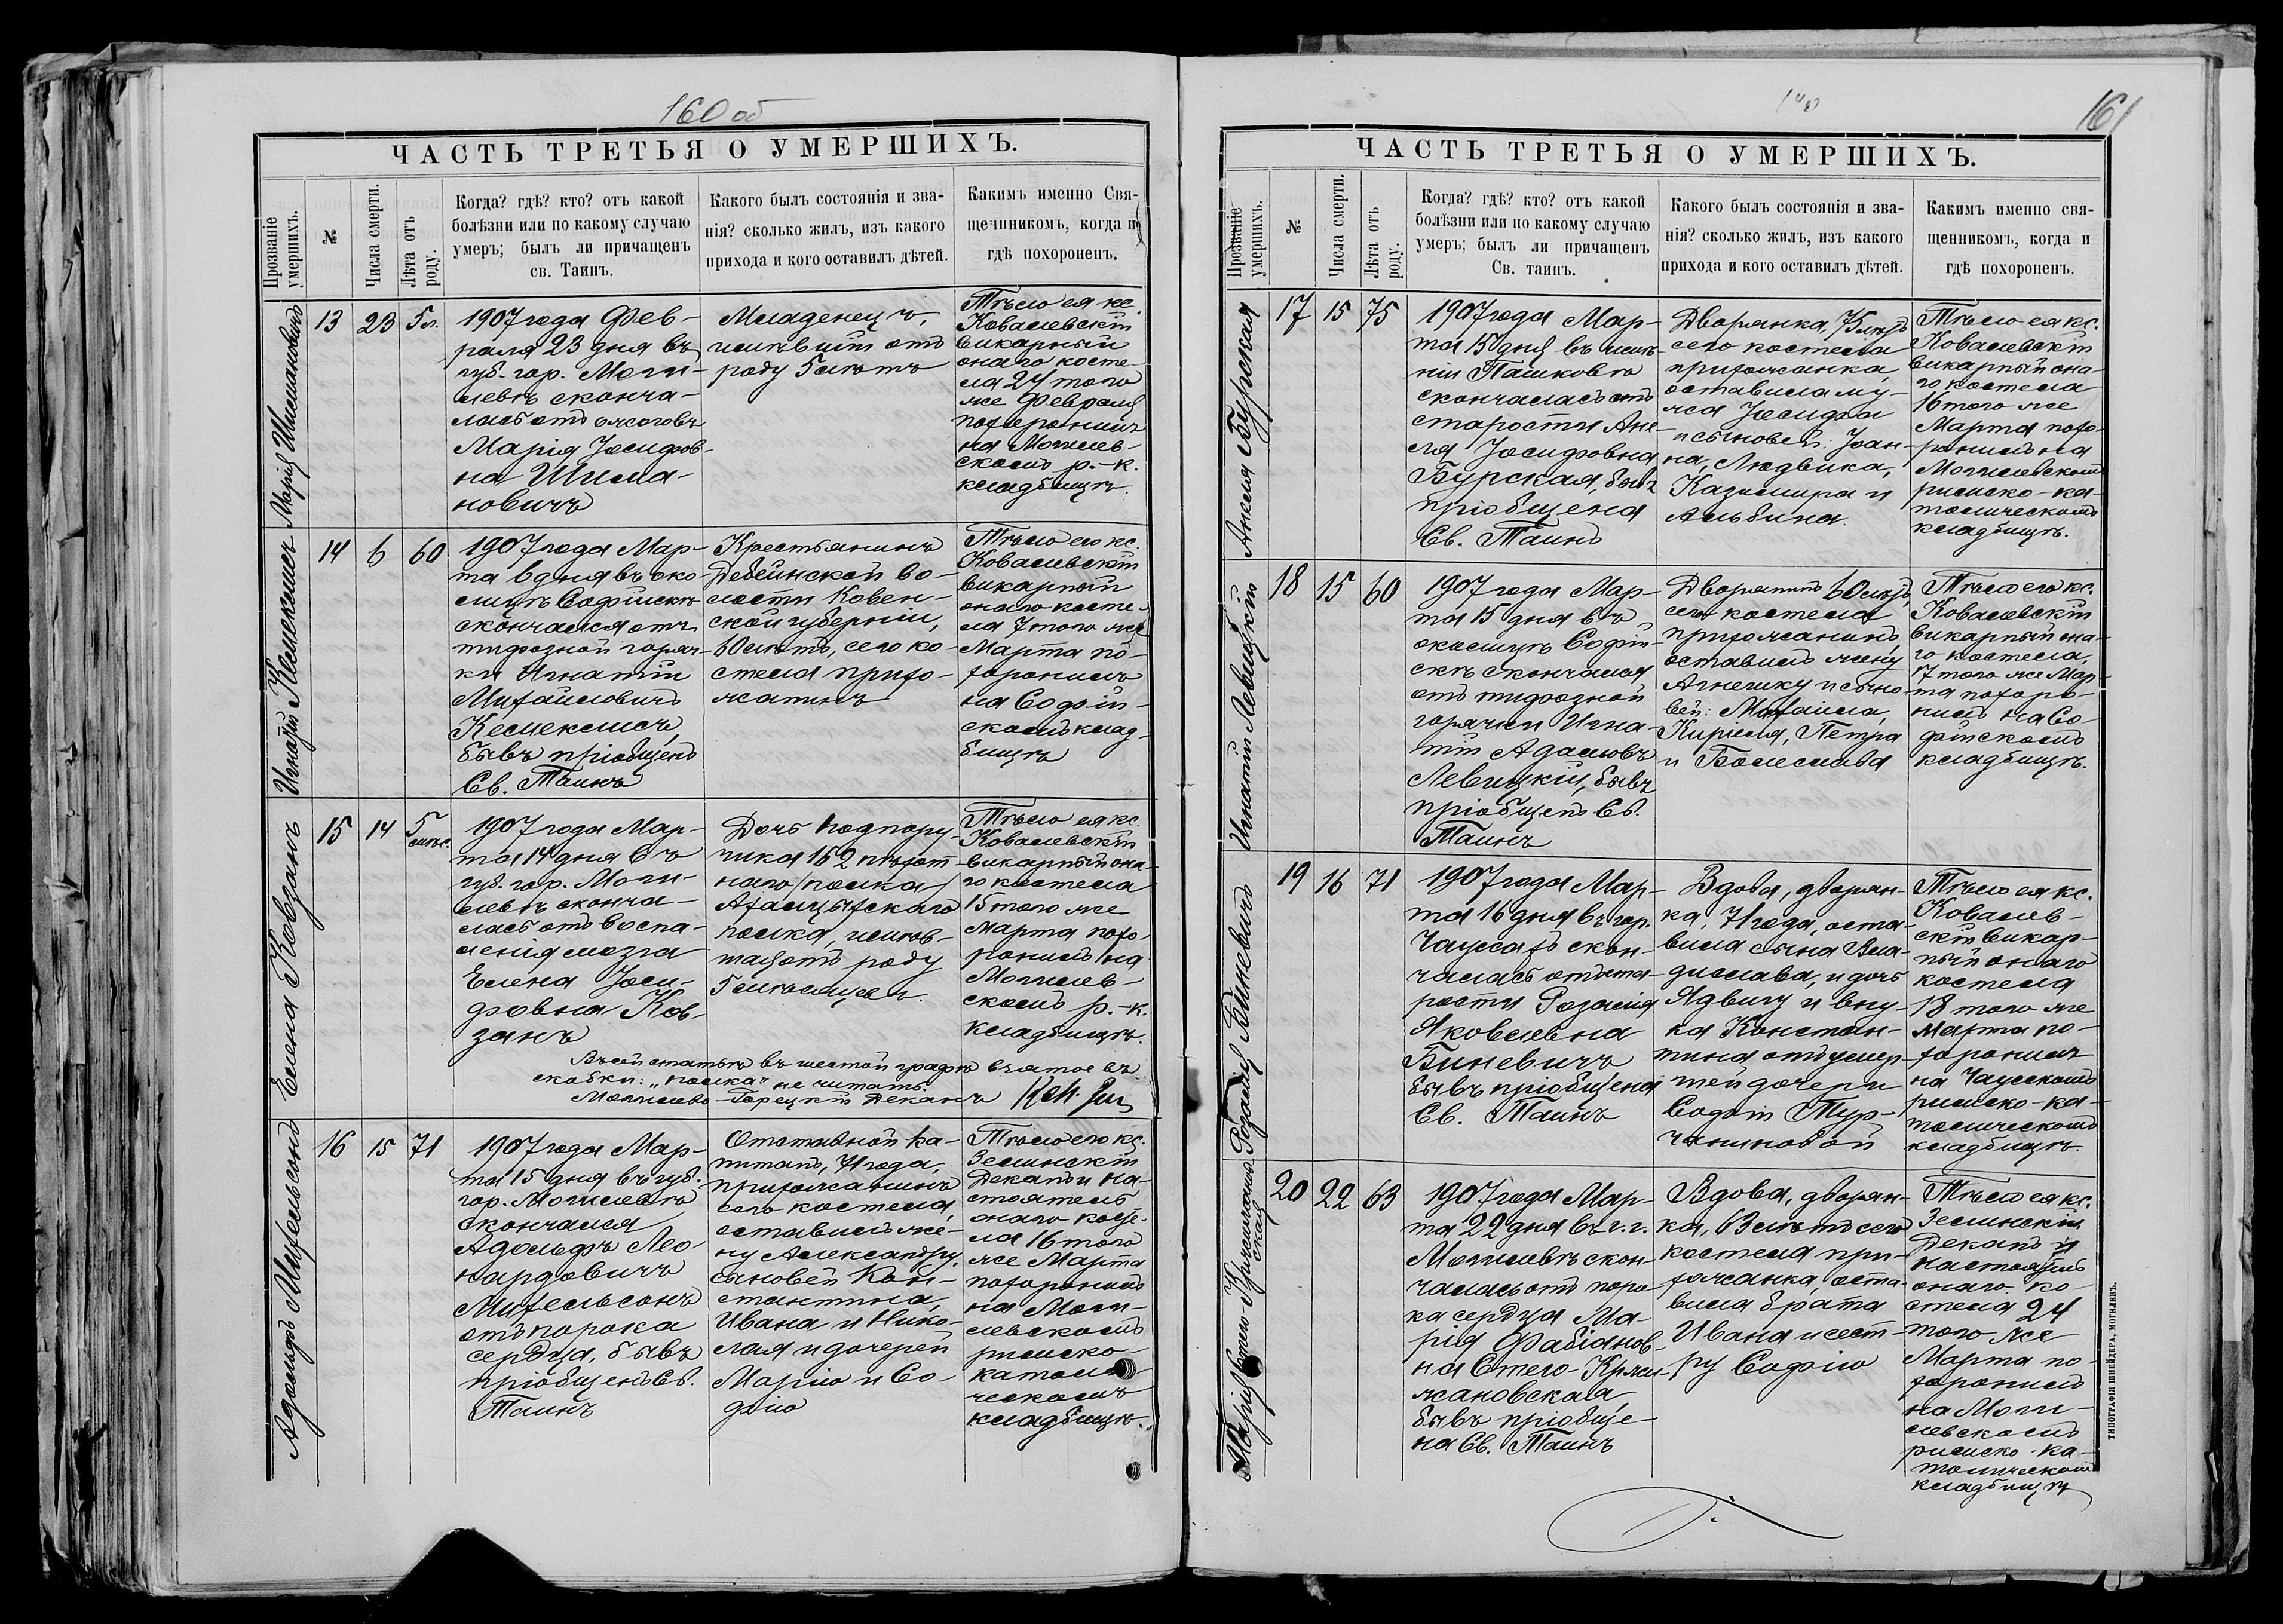 160 об
ЧАСТЬ ТРЕТЬЯ О УМЕРШИХЪ.
Прозваніе
умершихъ.
№
Числа смерти.
Лѣта отъ
роду.
Когда? гдѣ? кто? отъ какой
болѣзни или по какому случаю
умеръ; былъ ли причащенъ
св. Таинъ.
Какого былъ состоянія и зва-
нія? сколько жилъ, изъ какого
прихода и кого оставилъ дѣтей.
Какимъ именно Свя-
щенникомъ, когда и
гдѣ похороненъ.
Марія Шимановичъ
13
23
5 л.
1907 года Фев-
раля 23 дня въ
губ. гор. Моги-
левѣ сконча-
лась отъ ожоговъ
Марія Іосифов-
на Шима-
новичъ
Младенецъ,
жившій отъ
роду 5 лѣтъ
Тѣло ея кс.
Ковалевскій
викарный
онаго косте-
ла 24 того
же Февраля
похоронилъ
на Могилев-
скомъ р.-к.
кладбищѣ.
Игнатій Келекелисъ
14
6
60
1907 года Мар-
та 6 дня въ око-
лицѣ Софійскѣ
скончался отъ
тифозной горяч-
ки Игнатій
Михайловичъ
Келекелисъ,
бывъ пріобщенъ
Св. Таинъ
Крестьянинъ
Дебейнской во-
лости Ковен-
ской губерніи,
60 лѣтъ, сего ко-
стела прихо-
жанинъ
Тѣло его кс.
Ковалевскій
викарный
онаго косте-
ла 7 того же
Марта по-
хоронилъ
на Софій-
скомъ клад-
бищѣ
Елена Ковзанъ
15
14
5
мѣс.
1907 года Мар-
та 14 дня въ
губ. гор. Моги-
левѣ сконча-
лась отъ воспа-
ленія мозга
Елена Іоси-
фовна Ков-
занъ
Дочь подпору-
чика 162 пѣхот-
наго /полка/
Ахалцыхскаго
полка, жив-
шая отъ роду
5 мѣсяцевъ.
Тѣло ея кс.
Ковалевскій
викарный она-
го костела
15 того же
Марта похо-
ронилъ на
Могилев-
скомъ р.-к.
кладбищѣ.
Въ сей статьѣ въ шестой графѣ взятое въ
скобки: „полка" не читать.
Могилево-Горецкій Деканъ
Адольфъ Михельсонъ
16
15
71
1907 года Мар-
та 15 дня въ губ.
гор. Могилевѣ
скончался
Адольфъ Лео-
нардовичъ
Михельсонъ
отъ порока
сердца, бывъ
пріобщенъ Св.
Таинъ
Отставной ка-
питанъ, 71 года,
прихожанинъ
сего костела,
оставилъ же-
ну Александру,
сыновей Кон-
стантина,
Ивана и Нико-
лая и дочерей
Марію и Со-
фію
Тѣло его кс.
Зелинскій
Деканъ и на-
стоятель
онаго косте-
ла 16 того
же Марта
похоронилъ
на Моги-
левскомъ
римско-
католи-
ческомъ
кладбищѣ.
161
ЧАСТЬ ТРЕТЬЯ О УМЕРШИХЪ.
Прозваніе
умершихъ.
№
Числа смерти.
Лѣта отъ
роду.
Когда? гдѣ? кто? отъ какой
болѣзни или по какому случаю
умеръ; былъ ли причащенъ
Св. таинъ.
Какого былъ состоянія и зва-
нія? сколько жилъ, изъ какого
прихода и кого оставилъ дѣтей.
Какимъ именно свя-
щенникомъ, когда и
гдѣ похороненъ.
Анеля Бурская
17
15
75
1907 года Мар-
та 15 дня въ имѣ-
ніи Пашково
скончалась отъ
старости Ане-
ля Іосифовна
Бурская, бывъ
пріобщена
Св. Таинъ
Дворянка, 75 лѣтъ
сего костела
прихожанка,
оставила му-
жа Іосифа
и сыновей: Іоан-
на, Людвика,
Казимира и
Альбина.
Тѣло ея кс.
Ковалевскій
викарный она-
го костела
16 того же
Марта похо-
ронилъ на
Могилевскомъ
римско-ка-
толическомъ
кладбищѣ.
Игнатій Левицкій
18
15
60
1907 года Мар-
та 15 дня въ
околицѣ Софій-
скѣ скончался
отъ тифозной
горячки Игна-
тій Адамовъ
Левицкій, бывъ
пріобщенъ Св.
Таинъ
Дворянинъ 60 лѣтъ,
сего костела
прихожанинъ,
оставилъ жену
Агнешку и сыно-
вей: Михаила,
Кирилла, Петра
и Болеслава
Тѣло его кс.
Ковалевскій
викарный она-
го костела,
17 того же Мар-
та похоро-
нилъ на Со-
фійскомъ
кладбищѣ.
Розалія Биневичъ
19
16
71
1907 года Мар-
та 16 дня въ гор.
Чаусахъ скон-
чалась отъ ста-
рости Розалія
Яковлевна
Биневичъ
бывъ пріобщена
Св. Таинъ
Вдова, дворян-
ка, 71 года, оста-
вила сына Вла-
дислава, и дочь
Ядвигу и вну-
ка Констан-
тина отъ умер-
шей дочери
Софіи Тур-
чаниновой
Тѣло ея кс.
Ковалев-
скій викар-
ный онаго
костела
18 того же
Марта по-
хоронилъ
на Чаусскомъ
римско-ка-
толическомъ
кладбищѣ.
Марія Стего-Кржижанов
ская
20
22
63
1907 года Мар-
та 22 дня въ г. г.
Могилевѣ скон-
чалась отъ поро-
ка сердца Ма-
рія Фабіанов-
на Стего-Кржи-
жановская,
бывъ пріобще-
на Св. Таинъ
Вдова, дворян-
ка, 63 лѣтъ сего
костела при-
хожанка, оста-
вила брата
Ивана и сест-
ру Софію
Тѣло ея кс.
Зелинскій
Деканъ и
настоятель
онаго ко-
стела 24
того же
Марта по-
хоронилъ
на Моги-
левскомъ
римско-ка-
толическомъ
кладбищѣ
ТИПОГРАФІЯ ШНЕЙДЕРА, МОГИЛЕВЪ.